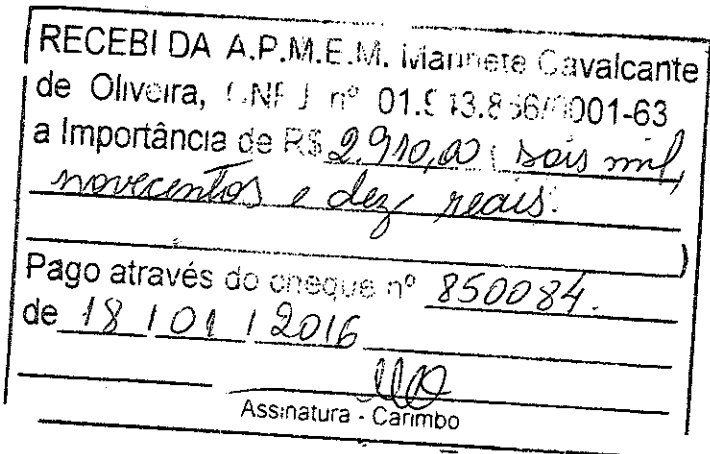 RECEBI DA A.P.M.E.M. Marinete Cavalcante
de Oliveira, CNPJ nº 01. 001-63
a Importância de R$ 2.910,00 ( dois mil,
novecentos e dez reais.
)
Pago através do cheque nº 850084.
de 18 / 01 / 2016
Assinatura - Carimbo